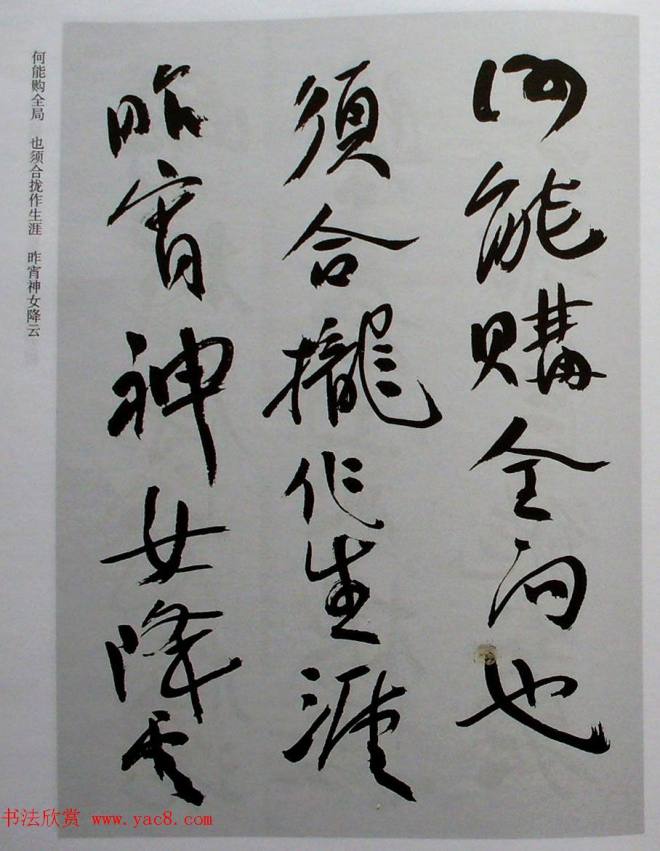 何能購全局也
須合攏作生涯
昨宵神女降雲
何能购全局 也须合拢作生涯 昨宵神女降云
书法欣赏 www.yac8.com